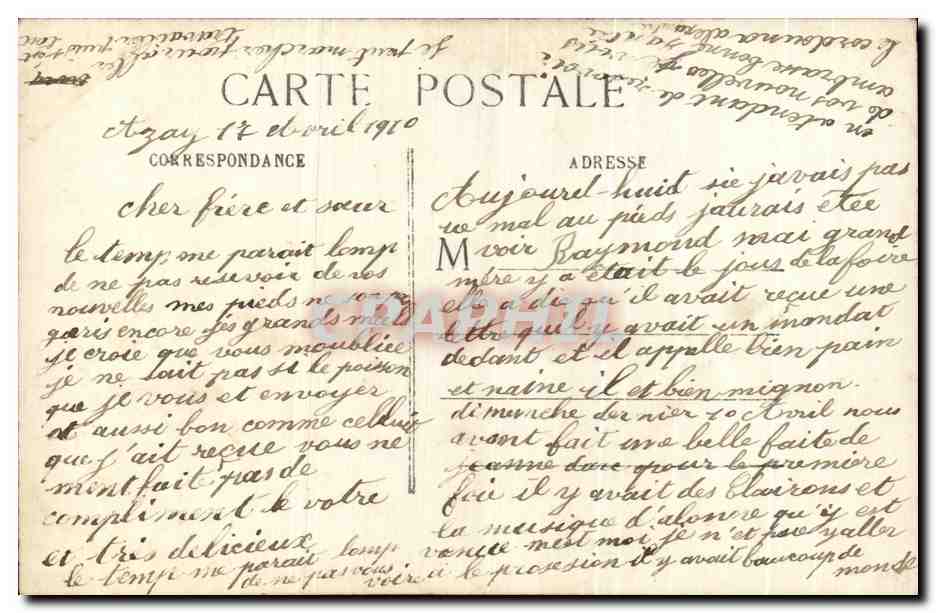 CARTE POSTALE
Azay 17 Avril 1910
CORRESPONDANCE
cher fiére et sœur
le temp me parait lomp
de ne pas resevoir de vos
nouvelles mes pieds ne
garis encore jés grands mal
je croie que vous moubliée
je ne sait pas si le poison
que je vous et envoyer
et aussi bon comme celluit
que j'ait reçue vous ne
ment fait pas de
compliment le votre
et tris délicieux
le temp me parait lomp
de ne pas vous voire
ADRESSE
Aujourd-huid sie javais pas
ue mal au pieds jaurais étée
M voir Raymond mai grand
mére y a était le jous de la foire
elle a di qu'il avait reçue une
lettr qu'il y avait un mandat
dedant et il appelle bien pain
et naine il et bien mignon.
dimenche dernier 10 Avril nous
avont fait une belle faite de
jeanne darc pour le premiere
foie il y avait des clairons et
la musique d'alonne qu'y est
venue mest moi je n'et pas y aller
a le prosesion il y avait baucoup de
monde
en atendant de
de vos nouvelles je vous
ambrasse bonne
le cordouna
je peut marcher pour aller
travailler